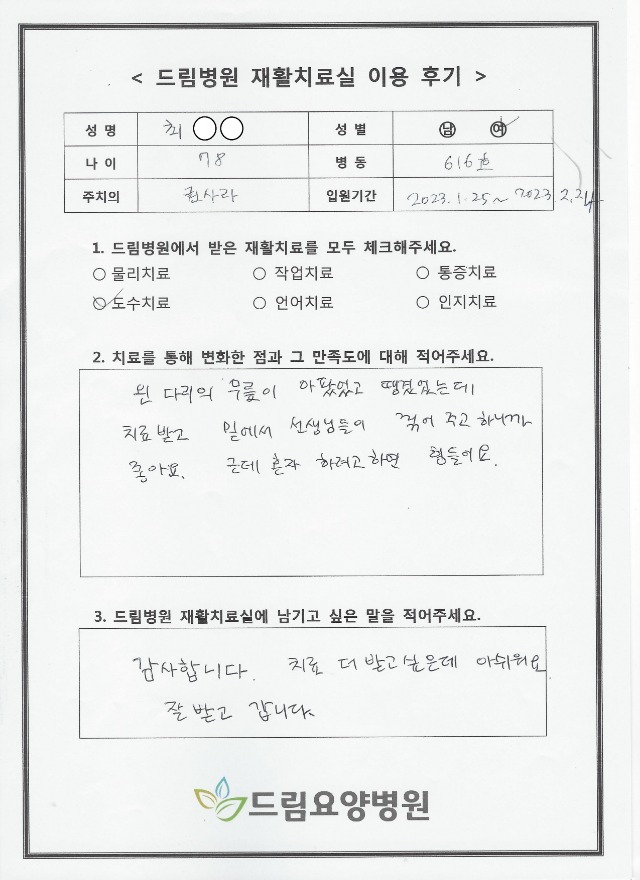 < 드림병원 재활치료실 이용 후기 >
성 명 최 ○○ 성 별 남 여
나 이 78 병 동 616호
주치의 입원기간 2023.1.25~2023.2.24
1. 드림병원에서 받은 재활치료를 모두 체크해주세요.
○ 물리치료 ○ 작업치료 ○ 통증치료
○ 도수치료 ○ 언어치료 ○ 인지치료
2. 치료를 통해 변화한 점과 그 만족도에 대해 적어주세요.
왼 다리의 무릎이 아팠었고 땡겼었는데
치료 받고 밑에서 선생님들이 꺾어 주고 하니까
좋아요. 근데 혼자 하려고 하면 힘들어요.
3. 드림병원 재활치료실에 남기고 싶은 말을 적어주세요.
감사합니다. 치료 더 받고 싶은데 아쉬워요
잘 받고 갑니다.
드림요양병원